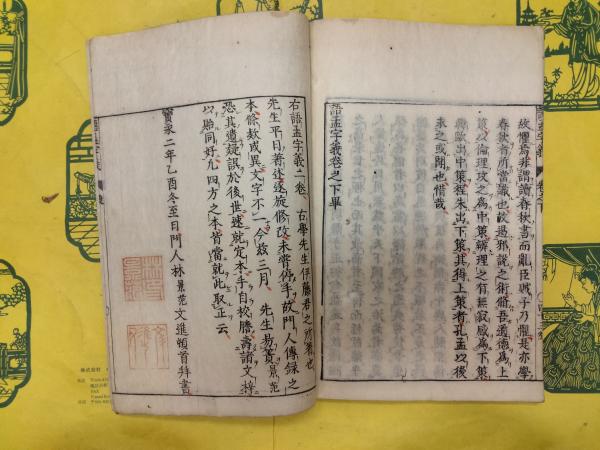 故懼焉非謂讀春秋書而亂臣賊子乃懼是亦學
春秋者所當識也故過邪說之術脩吾道德為上
策以倫理攻之為中策辨理之有無寂感為下策
縣出中策程朱出下策其得上策者孔孟以後
未之或聞也惜哉
語孟字義卷之下畢
右語孟字義二卷 古學先生伊藤君之所著也
先生平日著述旋修改未嘗停手故門人傳録之
本條款或異文字不一今兹三月 先生易簀景范
恐其遺疑誤於後世遂就定本手自校勝壽諸文梓
以貽同好凡四方之本皆當就此取正云
寶永二年乙酉冬至日門人林景范文進頓首拜書
語孟字義
株式会社